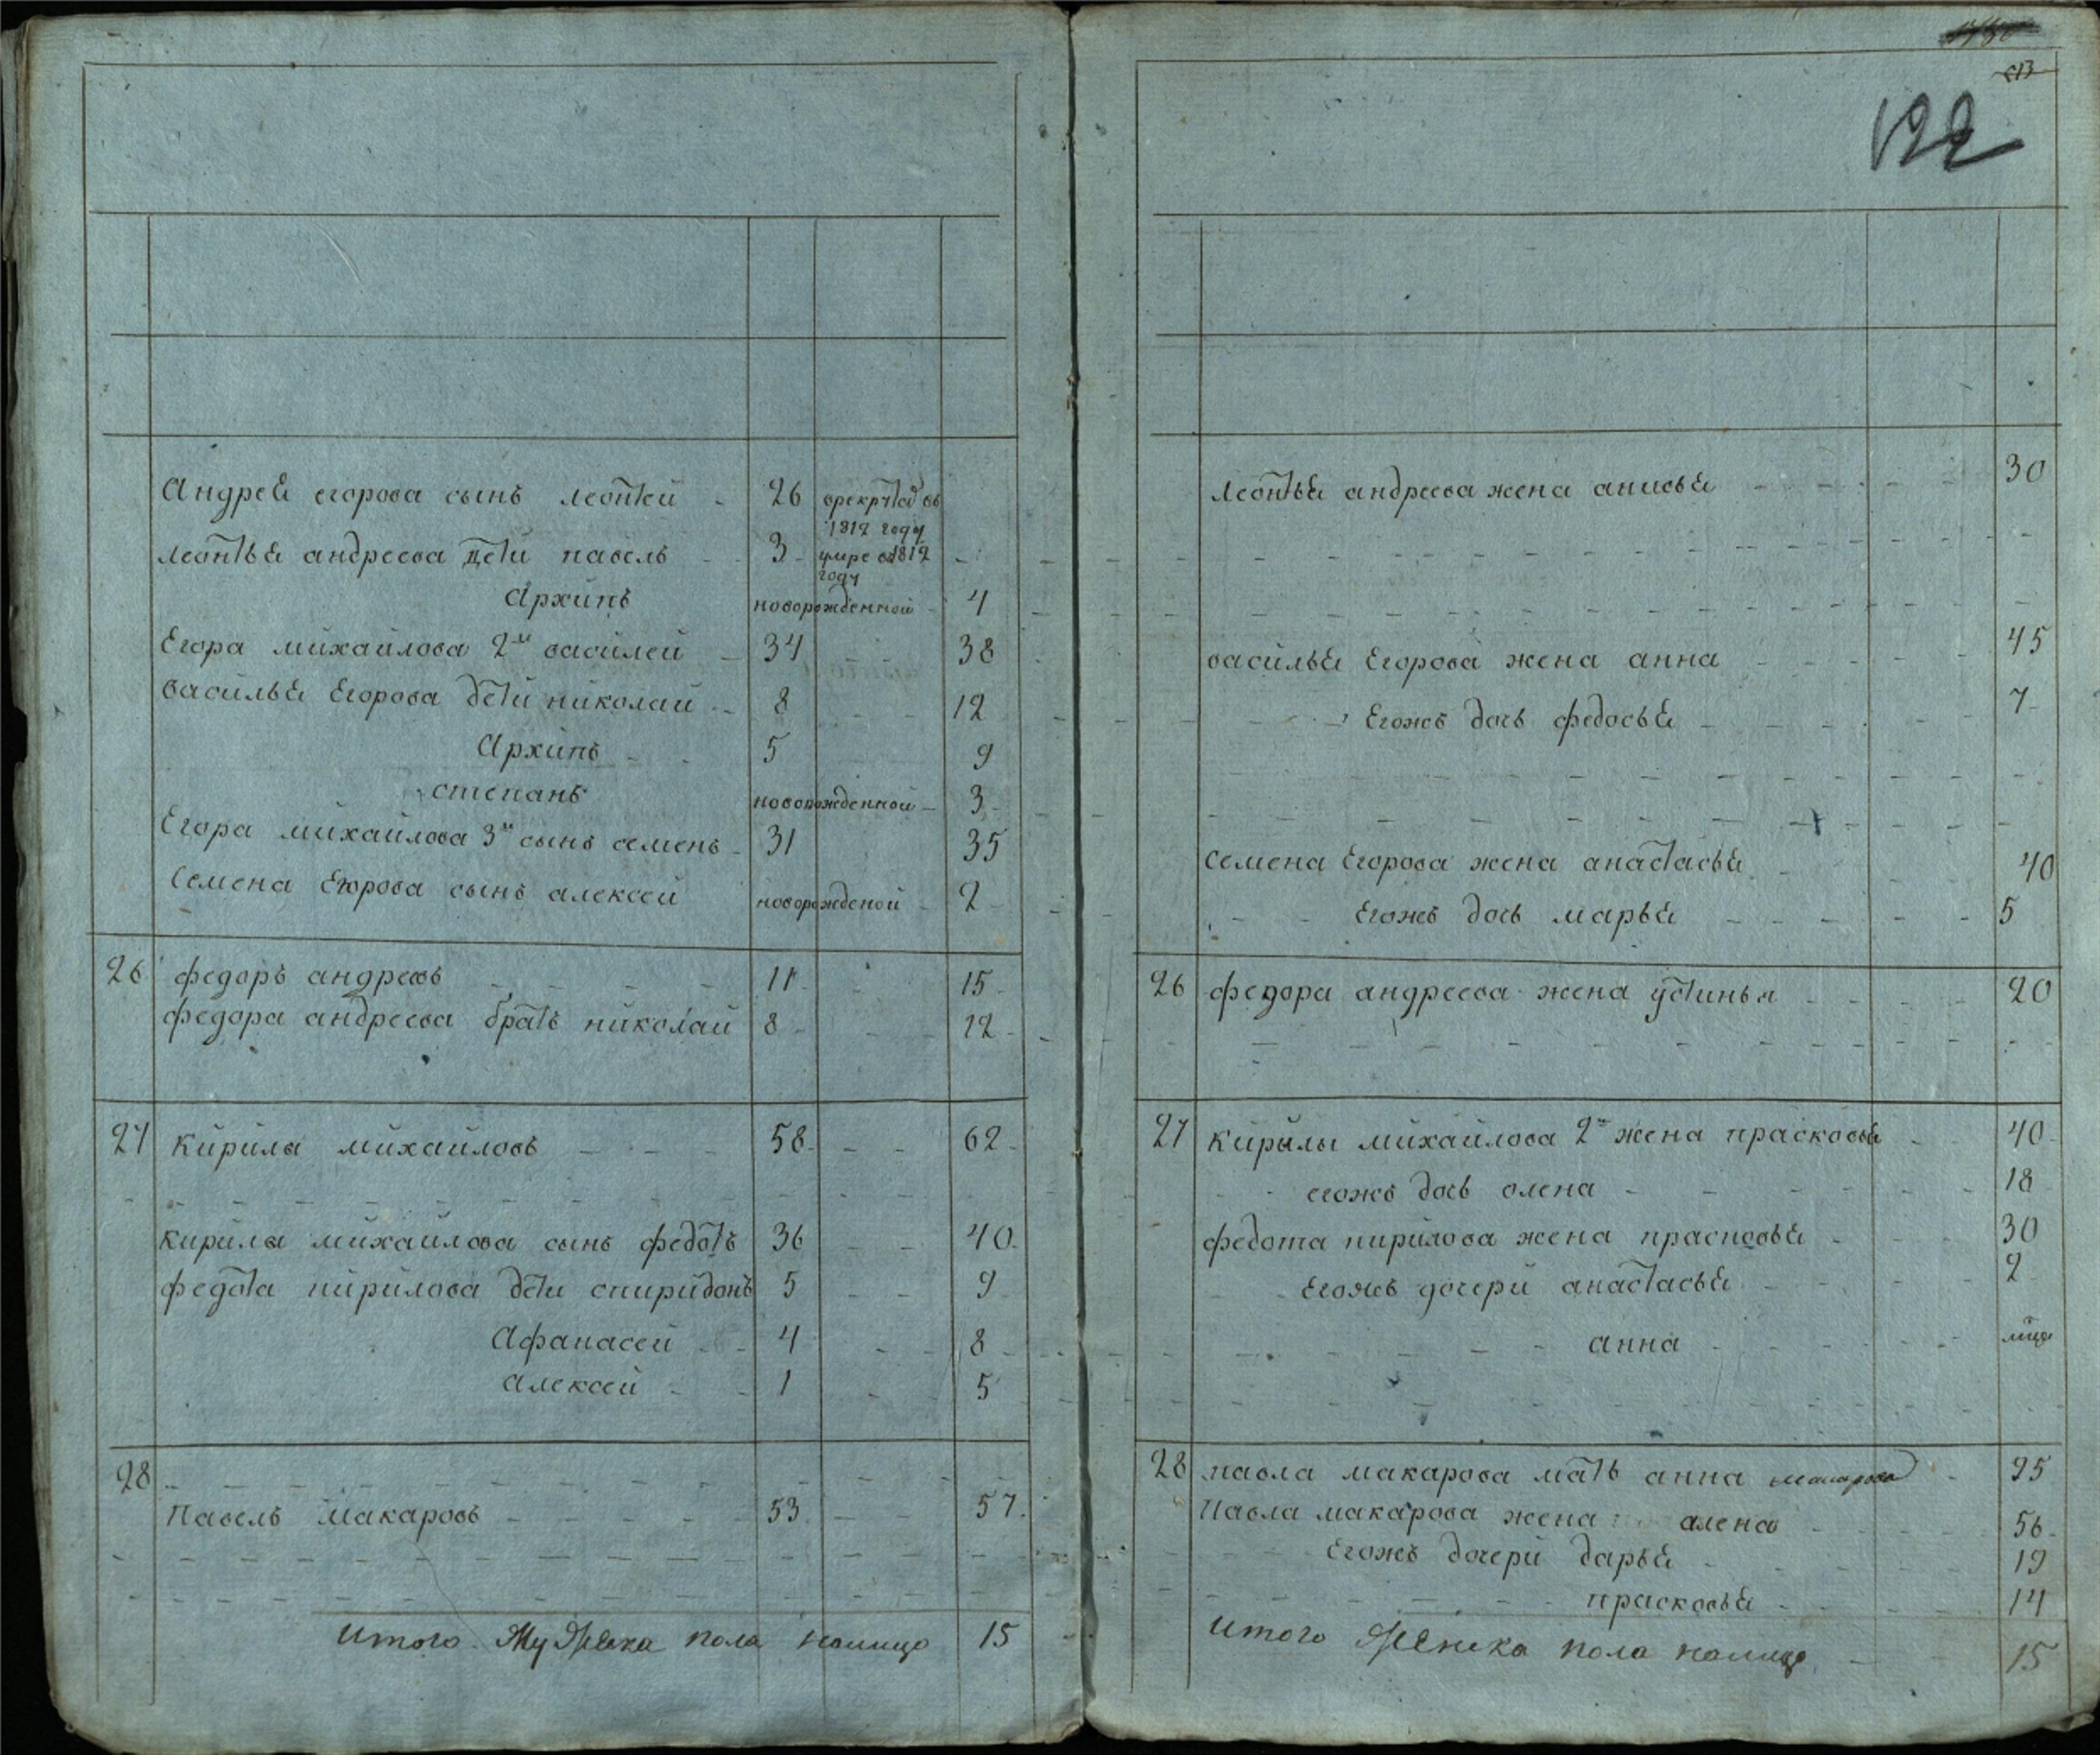 122
Андрея егорова сынъ леонтей 26 врекруты въ
1812 году
леонтья андреева дети павелъ 3 умре в 1812
году
Архипъ новорожденной 4
Егора михайлова 2й василей 34 38
василья Егорова дети николай 8 12
Архипъ 5 9
степанъ новорожденной 3
Егора михайлова 3й сынъ семенъ 31 35
Семена Егорова сынъ алексей новорожденой 2
26 федоръ андреевъ 11 15
федора андреева братъ николай 8 12
27 кирила михайловъ 58 62
кирилы михайлова сынъ федотъ 36 40
федота кирилова дети спиридонъ 5 9
Афанасей 4 8
алексей 1 5
28
Павелъ макаровъ 53 57
Итого Мужеска пола налицо 15
леонтья андреева жена анисья 30
василья Егорова жена анна 45
Егожъ дочь федосья 7
семена Егорова жена анастасья 40
Егожъ дочь марья 5
26 федора андреева жена устинья 20
27 кирылы михайлова 2я жена прасковья 40
егожъ дочь олена 18
федота кирилова жена прасковья 30
Егожъ дочери анастасья 2
анна
28 павла макарова мать анна макарова 95
Павла макарова жена алена 56
Егожъ дочери дарья 19
прасковья 14
Итого Женска пола налицо 15